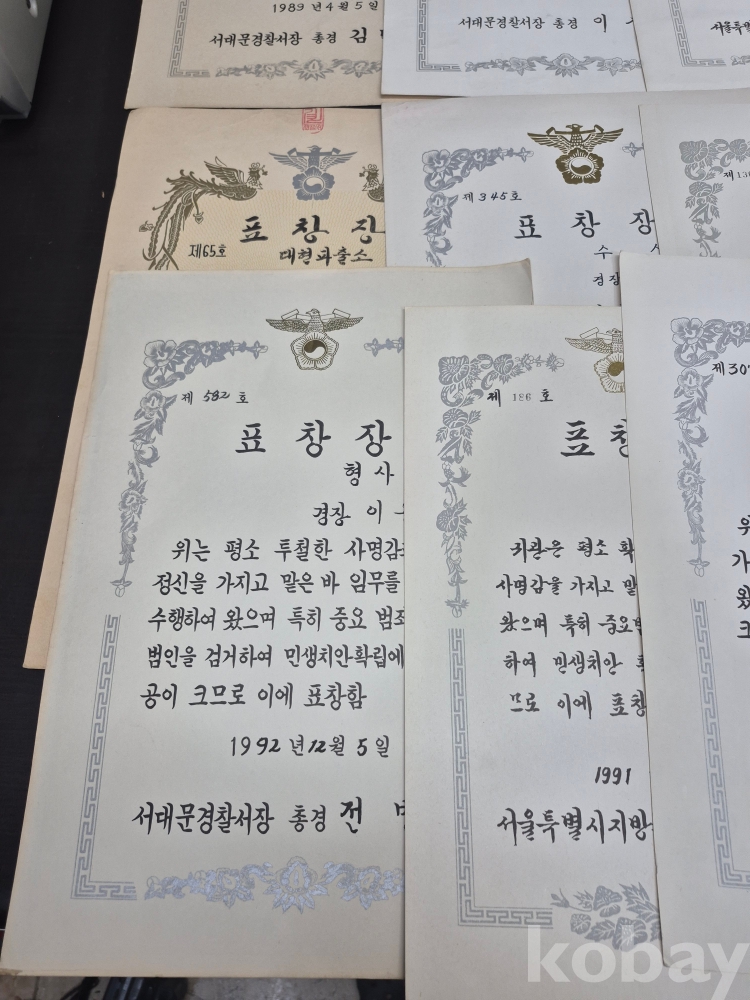 1989년 4월 5일
서대문경찰서장 총경 김
서대문경찰서장 총경 이
서울특별
제65호
표창장
대현파출소
제 345 호
표창장
수
경장
제 582 호
표창장
형사
경장 이
위는 평소 투철한 사명감
정신을 가지고 맡은 바 임무를
수행하여 왔으며 특히 중요 범죄
범인을 검거하여 민생치안확립에
공이 크므로 이에 표창함
1992년 12월 5일
서대문경찰서장 총경 전
제 186 호
표창
귀관은 평소 확
사명감을 가지고 맡
왔으며 특히 중요
하여 민생치안
므로 이에 표창
1991
서울특별시지방
제307
위
가
왔
크
kobay